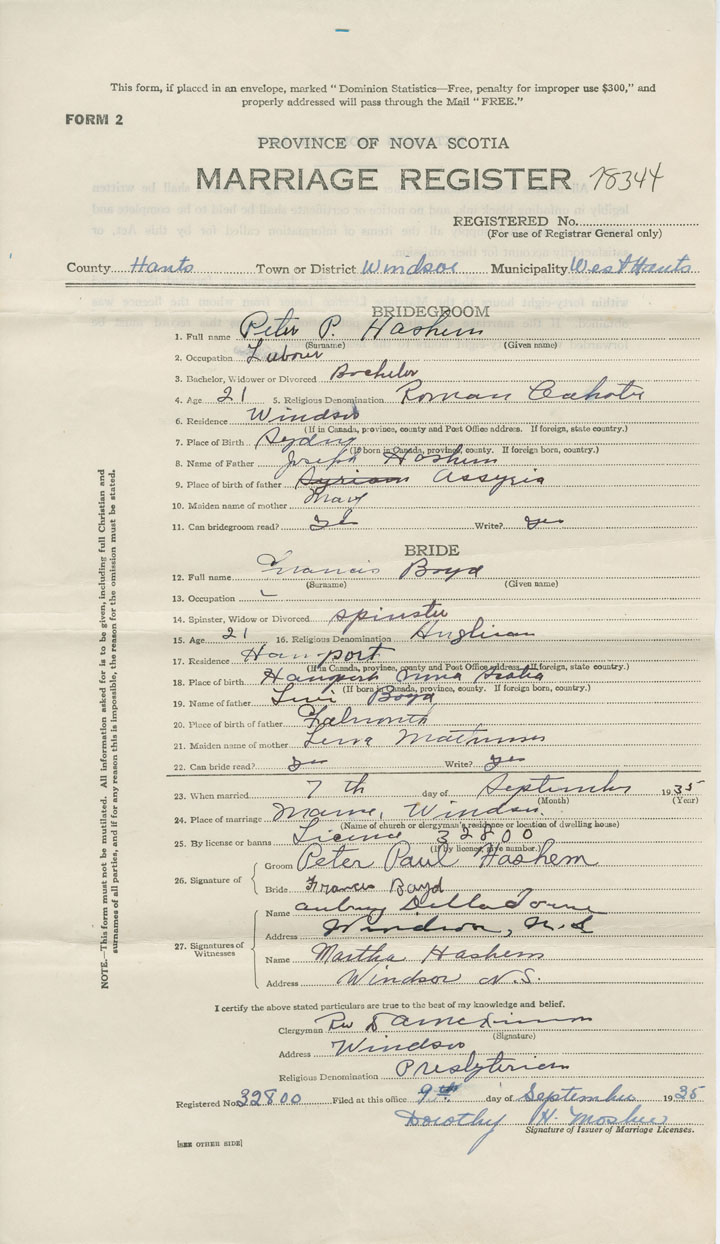 This form, if placed in an envelope, marked "Dominion Statistics—Free, penalty for improper use $300," and
properly addressed will pass through the Mail "FREE."
FORM 2
PROVINCE OF NOVA SCOTIA
MARRIAGE REGISTER 78344
REGISTERED No.
(For use of Registrar General only)
County Hants Town or District Windsor Municipality West Hants
BRIDEGROOM
1. Full name Peter P. Hashem
(Surname) (Given name)
2. Occupation Labour
3. Bachelor, Widower or Divorced Bachelor
4. Age 21 5. Religious Denomination Roman
6. Residence Windsor
(If in Canada, province, county and Post Office address. If foreign, state country.)
7. Place of Birth Sydny
(If born in Canada, province, county. If foreign born, country.)
8. Name of Father Joseph Hashem
9. Place of birth of father Syrian Assyria
10. Maiden name of mother Mary
11. Can bridegroom read? yes Write? yes
BRIDE
12. Full name Francis Boyd
(Surname) (Given name)
13. Occupation
14. Spinster, Widow or Divorced spinster
15. Age 21 16. Religious Denomination Anglican
17. Residence Hansport
(If in Canada, province, county and Post Office address. If foreign, state country.)
18. Place of birth Nova Scotia
(If born in Canada, province, county. If foreign born, country.)
19. Name of father Boyd
20. Place of birth of father Falmouth
21. Maiden name of mother
22. Can bride read? yes Write? yes
23. When married 7th day of September 1935
(Month) (Year)
24. Place of marriage Manse, Windsor.
(Name of church or clergyman's residence or location of dwelling house)
25. By license or banns Licence 32800
(If by license, give number.)
26. Signature of Groom Peter Paul Hashem
Bride Francis Boyd
27. Signatures of Witnesses
Name
Address Windsor, N.S
Name Martha Hashem
Address Windsor N.S.
I certify the above stated particulars are true to the best of my knowledge and belief.
Clergyman Rev
(Signature)
Address Windsor
Religious Denomination Presbyterian
Registered No. 32800 Filed at this office 9th day of September 1935
Dorothy H. Mosher
Signature of Issuer of Marriage Licenses.
[SEE OTHER SIDE]
NOTE.—This form must not be mutilated. All information asked for is to be given, including full Christian and
surnames of all parties, and if for any reason this is impossible, the reason for the omission must be stated.